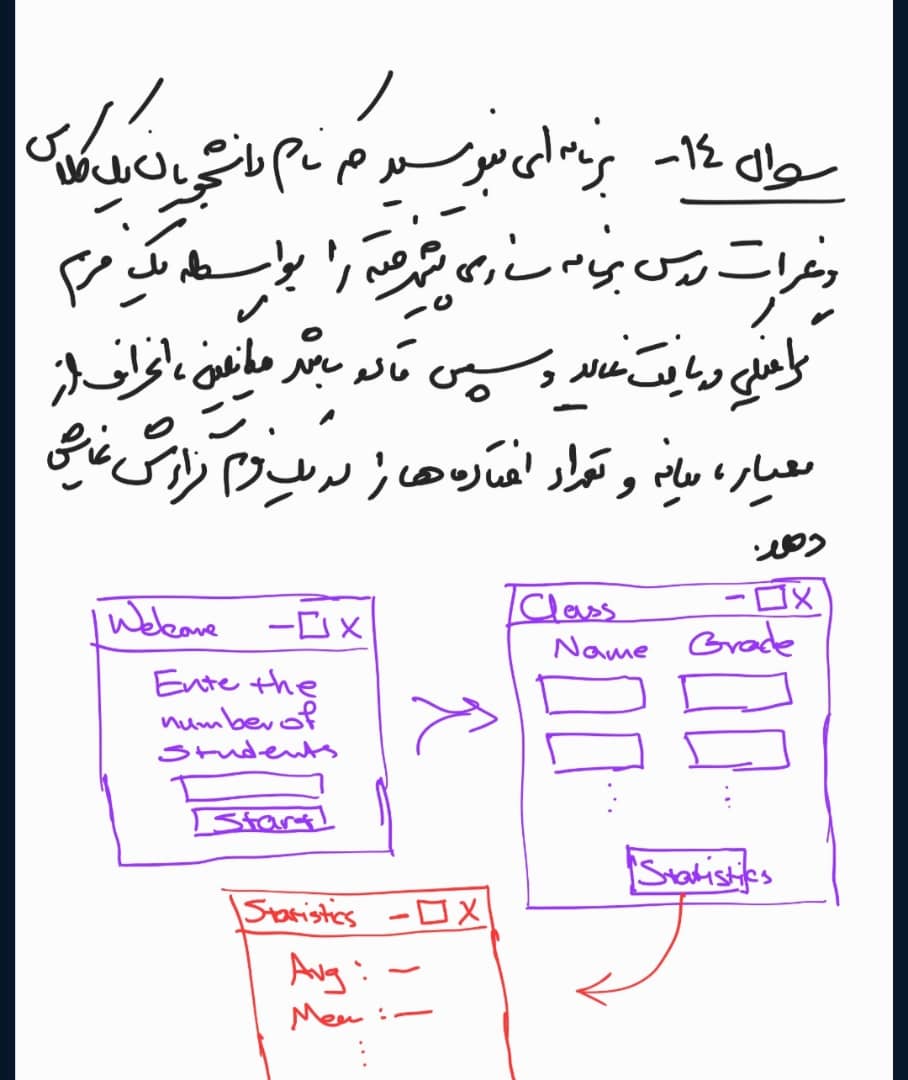 سوال ۱۴- برنامه‌ای بنویسید که نام دانشجویان یک کلاس
و نمرات درس برنامه سازی پیشرفته را بواسطه یک فرم
گرافیکی دریافت نماید و سپس قادر باشد میانگین، انحراف از
معیار، میانه و تعداد افتاده‌ها را در یک فرم گزارش نمایش
دهد.
Welcome - □ X
Ente the
number of
students
Start
Class - □ X
Name Grade
⋮ ⋮
Statistics
Statistics - □ X
Avg : —
⋮